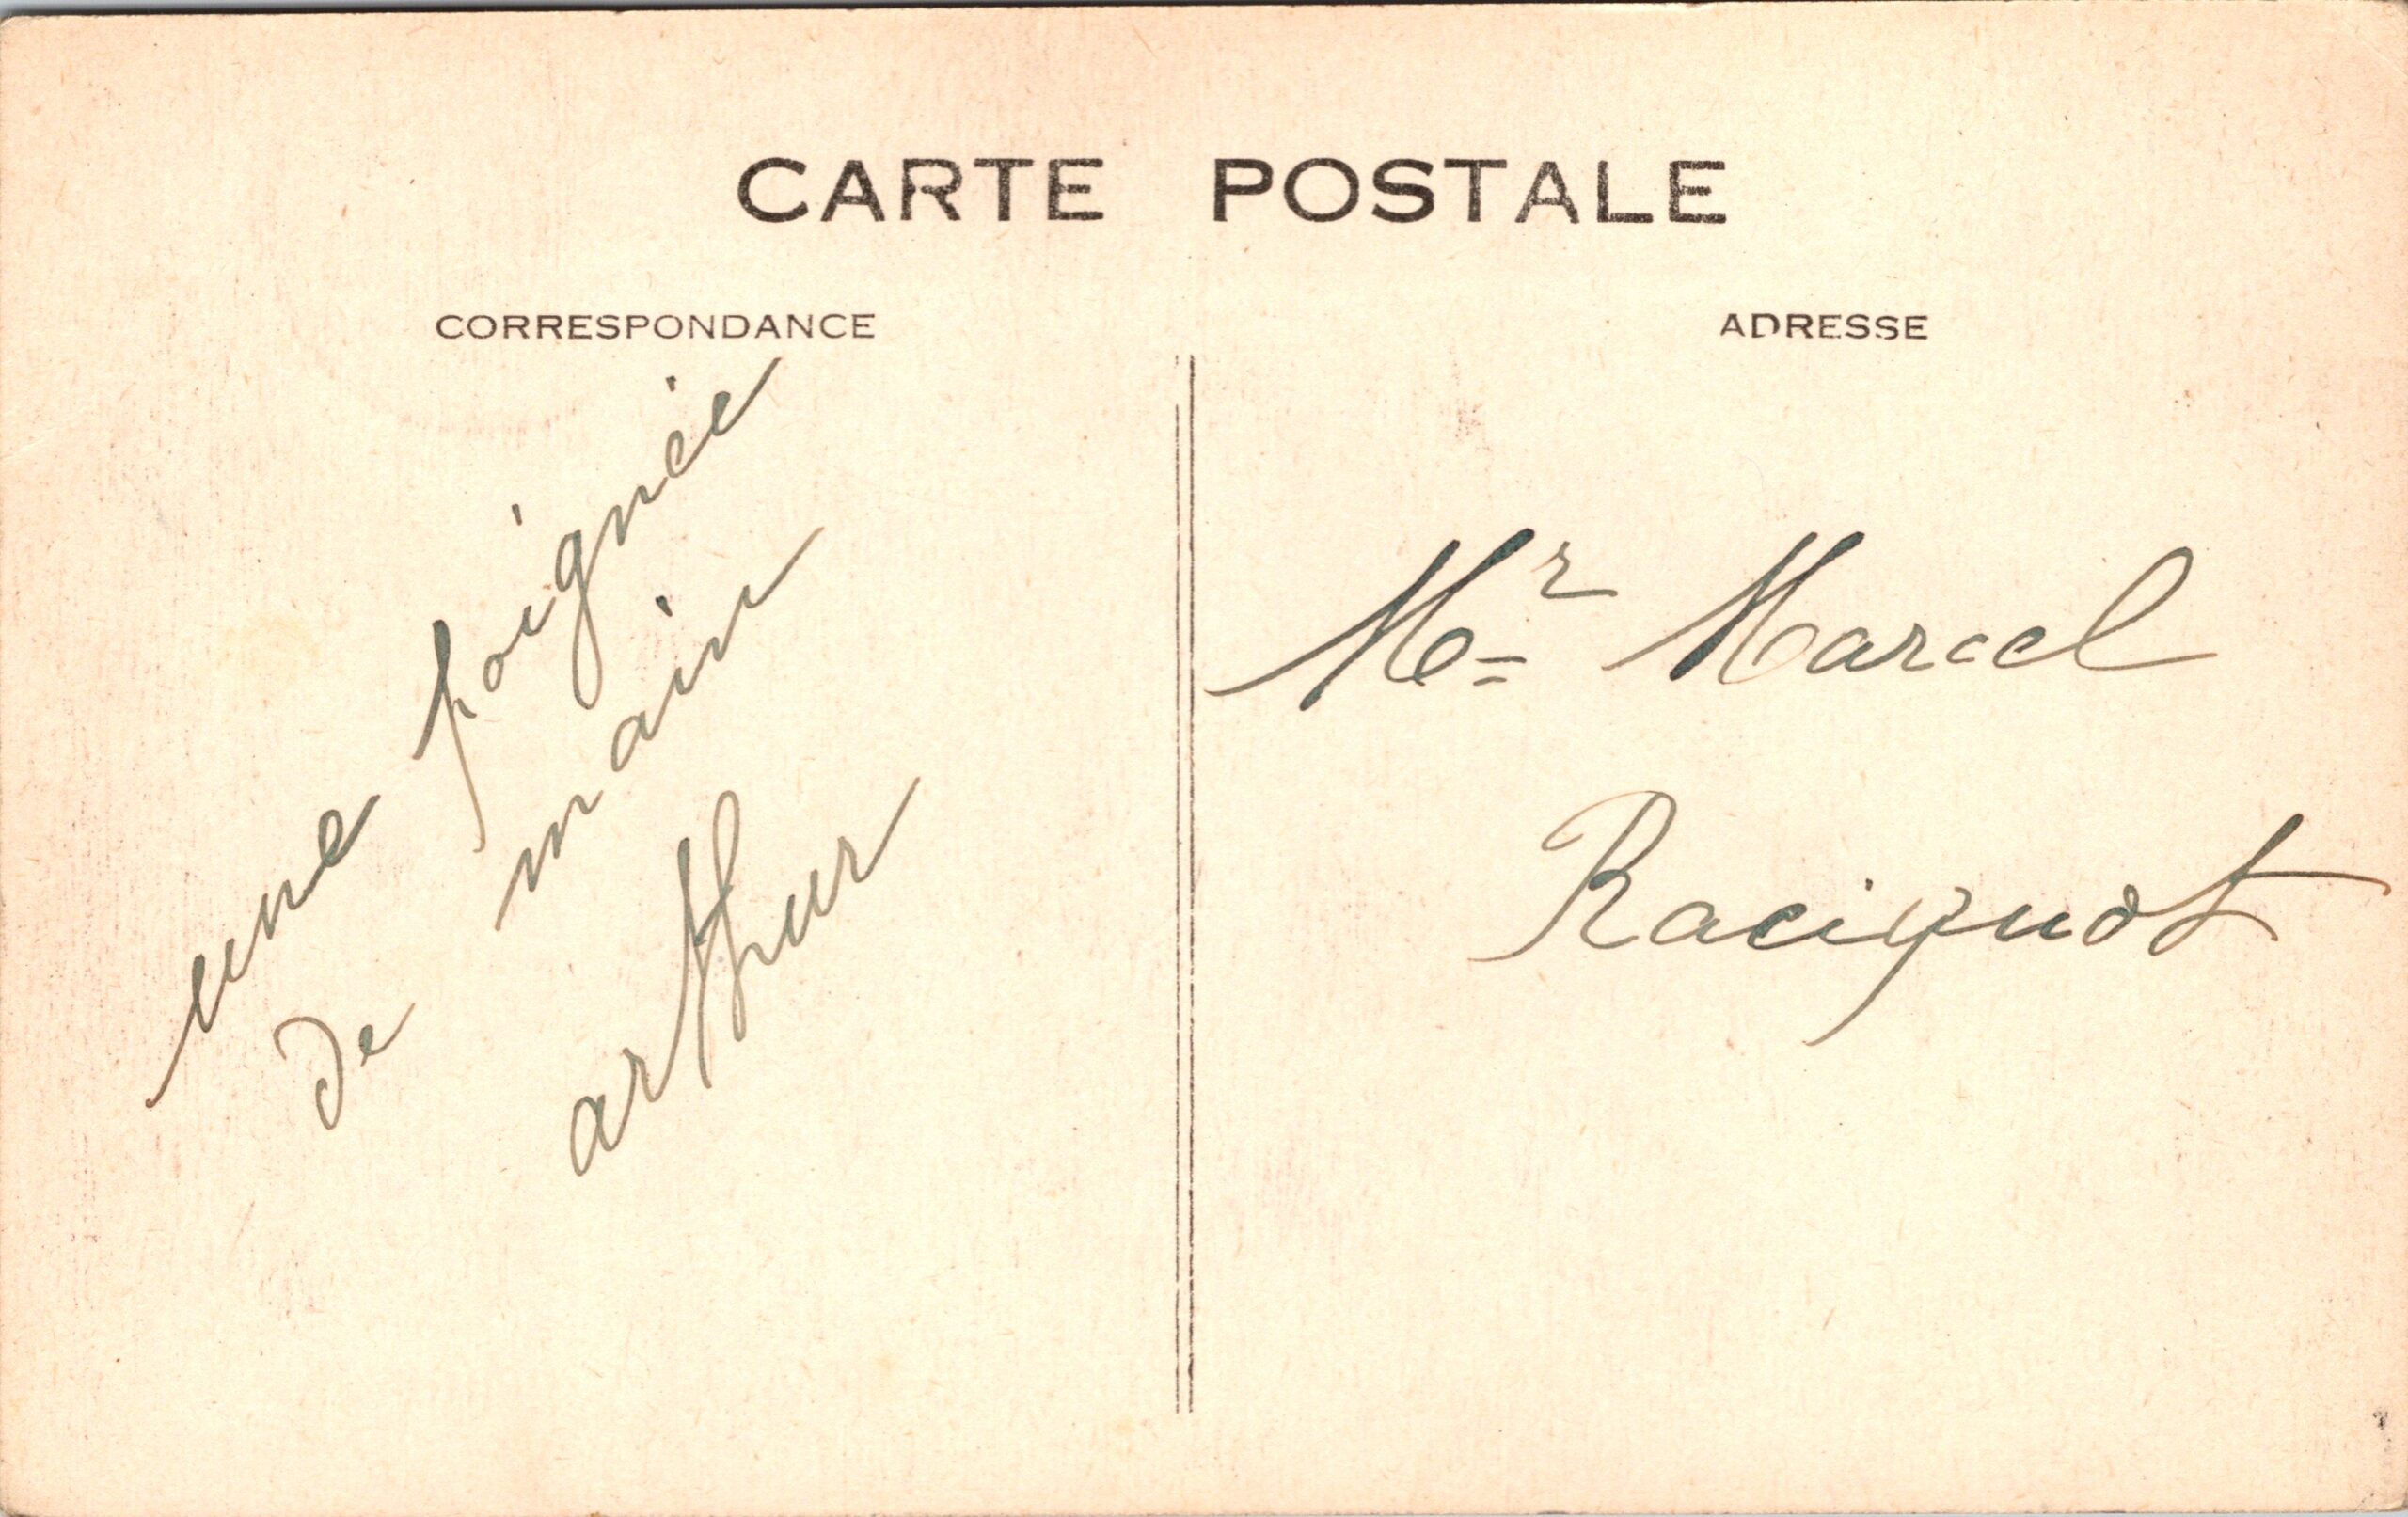 CARTE POSTALE
CORRESPONDANCE
ADRESSE
une poignée
de main
arthur
Mr Marcel
Raciquot